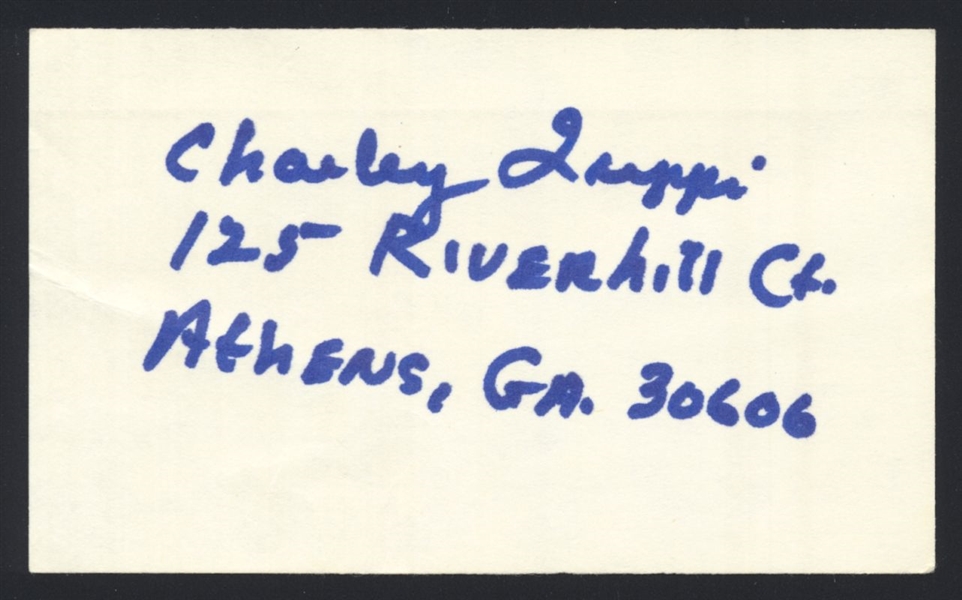 Charley Trippi
125 Riverhill Ct.
Athens, GA. 30606